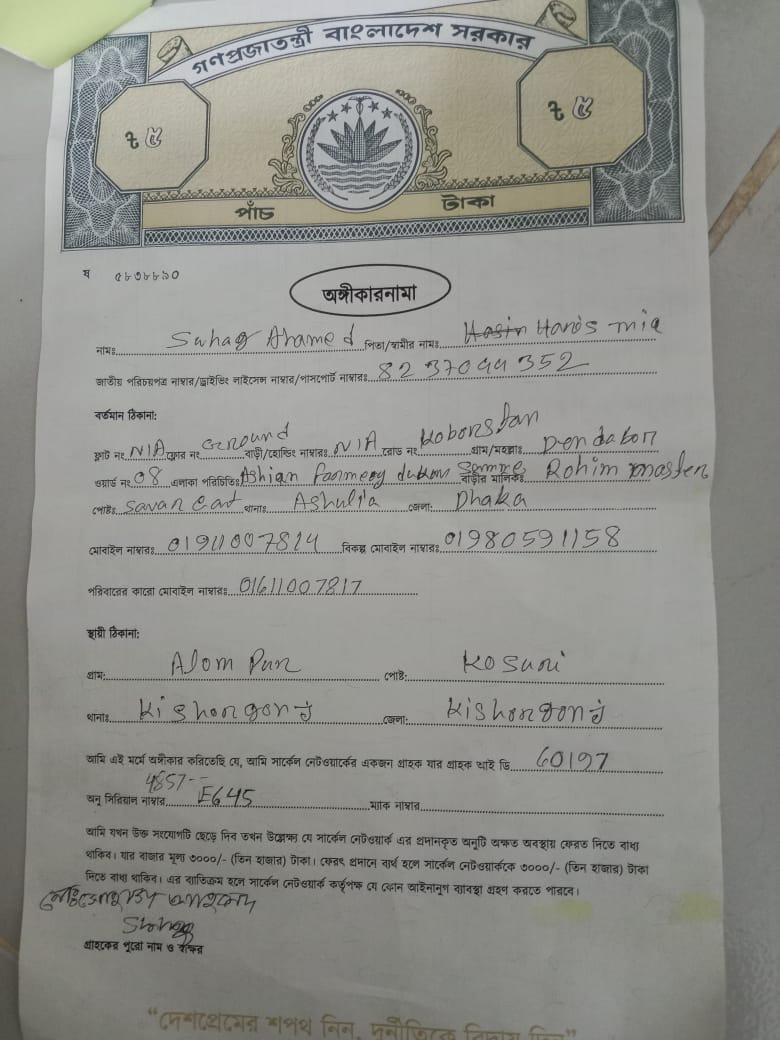 গণপ্রজাতন্ত্রী বাংলাদেশ সরকার
৳ ৫
৳ ৫
পাঁচ টাকা
ষ ৫৮৩৮৮৯০
অঙ্গীকারনামা
নামঃ Suhag Ahamed পিতা/স্বামীর নামঃ Hasin Haris mia
জাতীয় পরিচয়পত্র নাম্বার/ড্রাইভিং লাইসেন্স নাম্বার/পাসপোর্ট নাম্বারঃ 8237044352
বর্তমান ঠিকানা:
ফ্লাট নং N/A ফ্লোর নং Ground বাড়ী/হোল্ডিং নাম্বারঃ N/A রোড নং Koborstan গ্রাম/মহল্লাঃ Dendabor
ওয়ার্ড নং 08 এলাকা পরিচিতিঃ Ashian farmecy dukan বাড়ীর মালিকঃ Rohim master
পোষ্টঃ Savar Cant থানাঃ Ashulia জেলা: Dhaka
মোবাইল নাম্বারঃ 01911007814 বিকল্প মোবাইল নাম্বারঃ 01980591158
পরিবারের কারো মোবাইল নাম্বারঃ 01611007817
স্থায়ী ঠিকানা:
গ্রাম: Alom Pur পোষ্ট: Kosuri
থানাঃ Kishorgonj জেলা: Kishorgonj
আমি এই মর্মে অঙ্গীকার করিতেছি যে, আমি সার্কেল নেটওয়ার্কের একজন গ্রাহক যার গ্রাহক আই ডি 60197
4857--
অনু সিরিয়াল নাম্বার E645 ম্যাক নাম্বার
আমি যখন উক্ত সংযোগটি ছেড়ে দিব তখন উল্লেক্ষ্য যে সার্কেল নেটওয়ার্ক এর প্রদানকৃত অনুটি অক্ষত অবস্থায় ফেরত দিতে বাধ্য
থাকিব। যার বাজার মূল্য ৩০০০/- (তিন হাজার) টাকা। ফেরৎ প্রদানে ব্যর্থ হলে সার্কেল নেটওয়ার্ককে ৩০০০/- (তিন হাজার) টাকা
দিতে বাধ্য থাকিব। এর ব্যতিক্রম হলে সার্কেল নেটওয়ার্ক কর্তৃপক্ষ যে কোন আইনানুগ ব্যবস্থা গ্রহণ করতে পারবে।
গ্রাহকের পুরো নাম ও স্বাক্ষর
“দেশপ্রেমের শপথ নিন, দুর্নীতিকে বিদায় দিন”